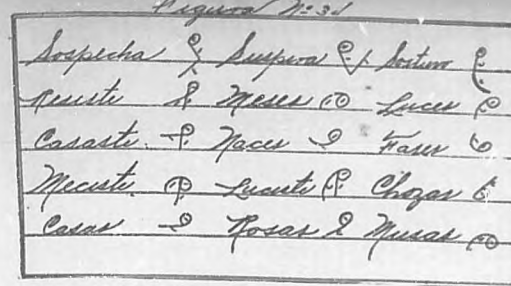 Figura Nº 31
Sospecha Suspira Sostuvo
Resiste Meses Luces
Casaste Naces Fases
Meciste Luciste Chozas
Casas Rosas Musas